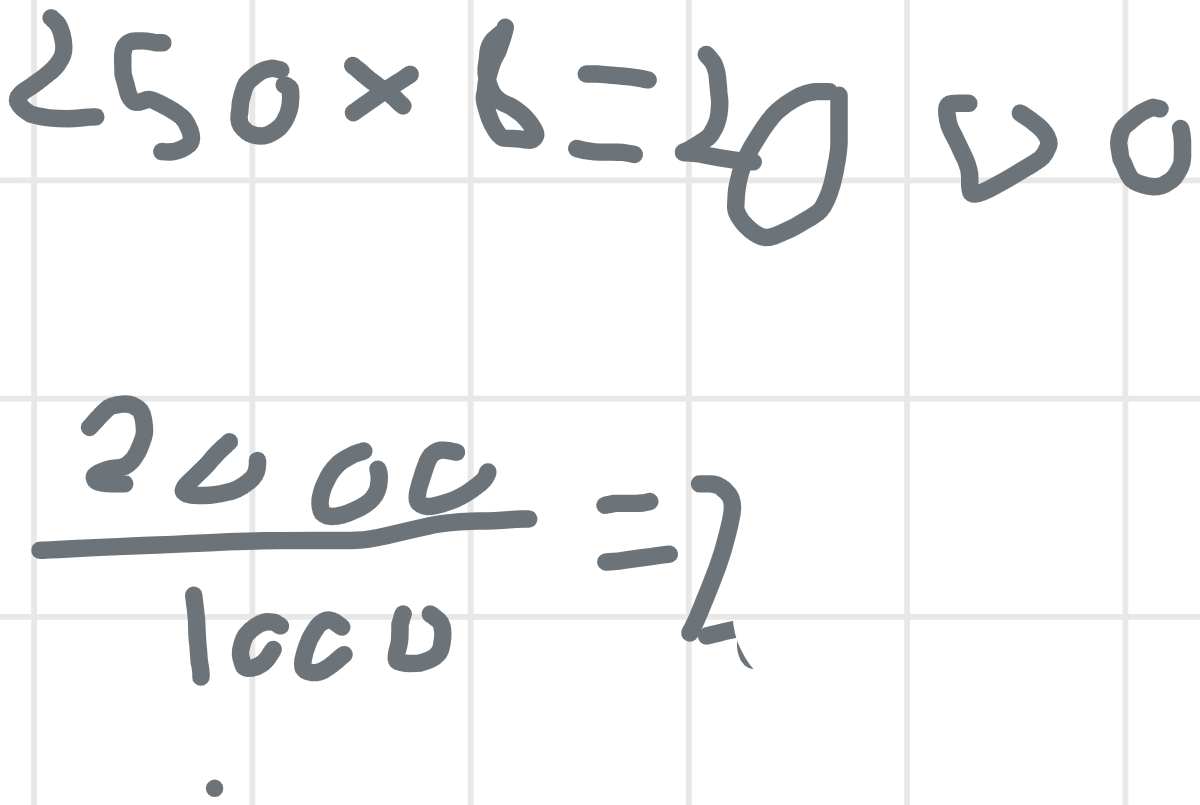 250 × 6 = 2000
2000
1000
= 2